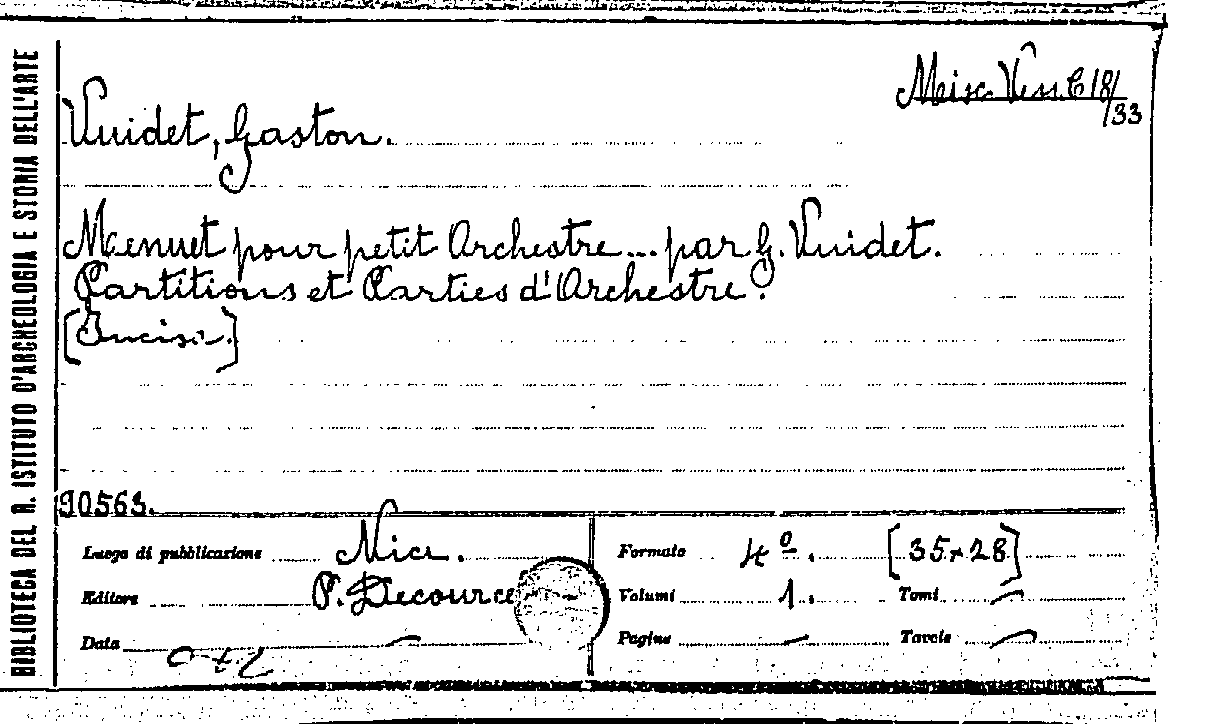 BIBLIOTECA DEL R. ISTITUTO D'ARCHEOLOGIA E STORIA DELL'ARTE
Misc. Vess. C 18/33
Vuidet, Gaston.
Menuet pour petit Orchestre... par G. Vuidet.
Partitions et Parties d'Orchestre.
[Incisa.]
90563.
Luogo di pubblicazione Nice. Formato 4º. [35×28]
Editore P. Decource Volumi 1. Tomi –
Data – Pagine – Tavole –